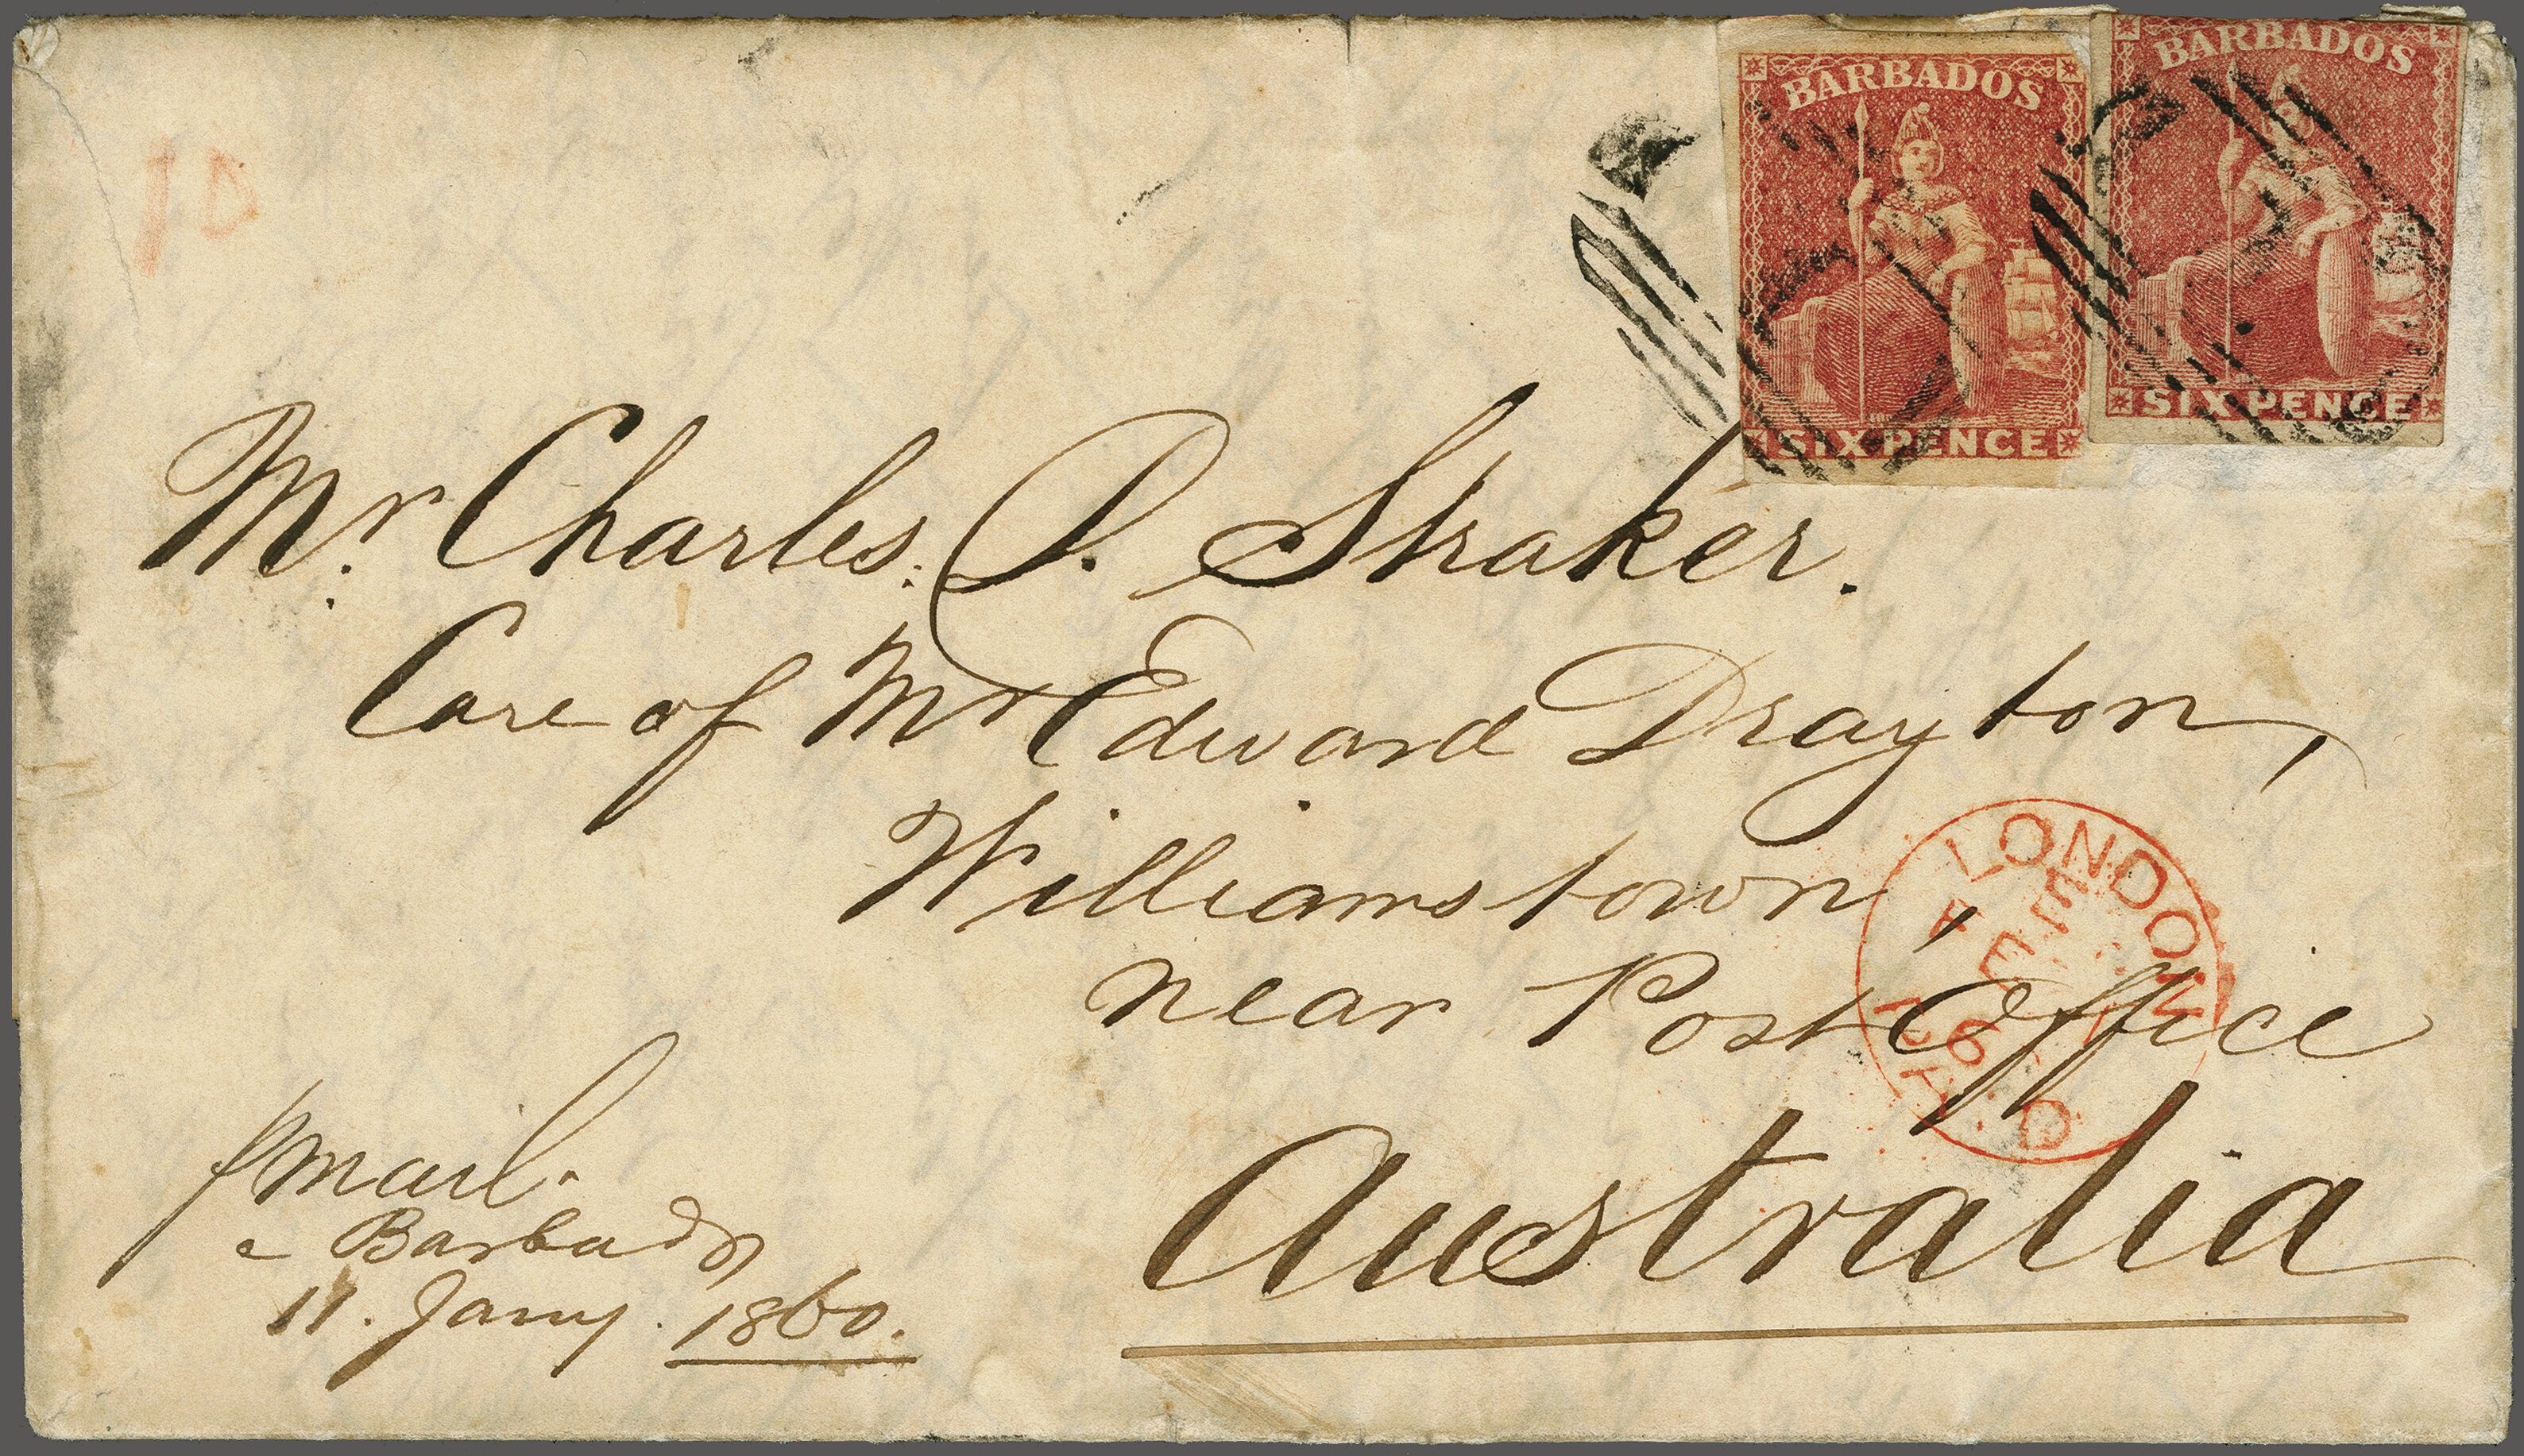 BARBADOS
SIX PENCE
BARBADOS
SIX PENCE
1D
Mr. Charles. P. Straker.
Care of Mr Edward Drayton,
Williamstown,
near Post Office
Australia
LONDON
FE
60
PAID
p mail.
Barbados
11. Jany. 1860.